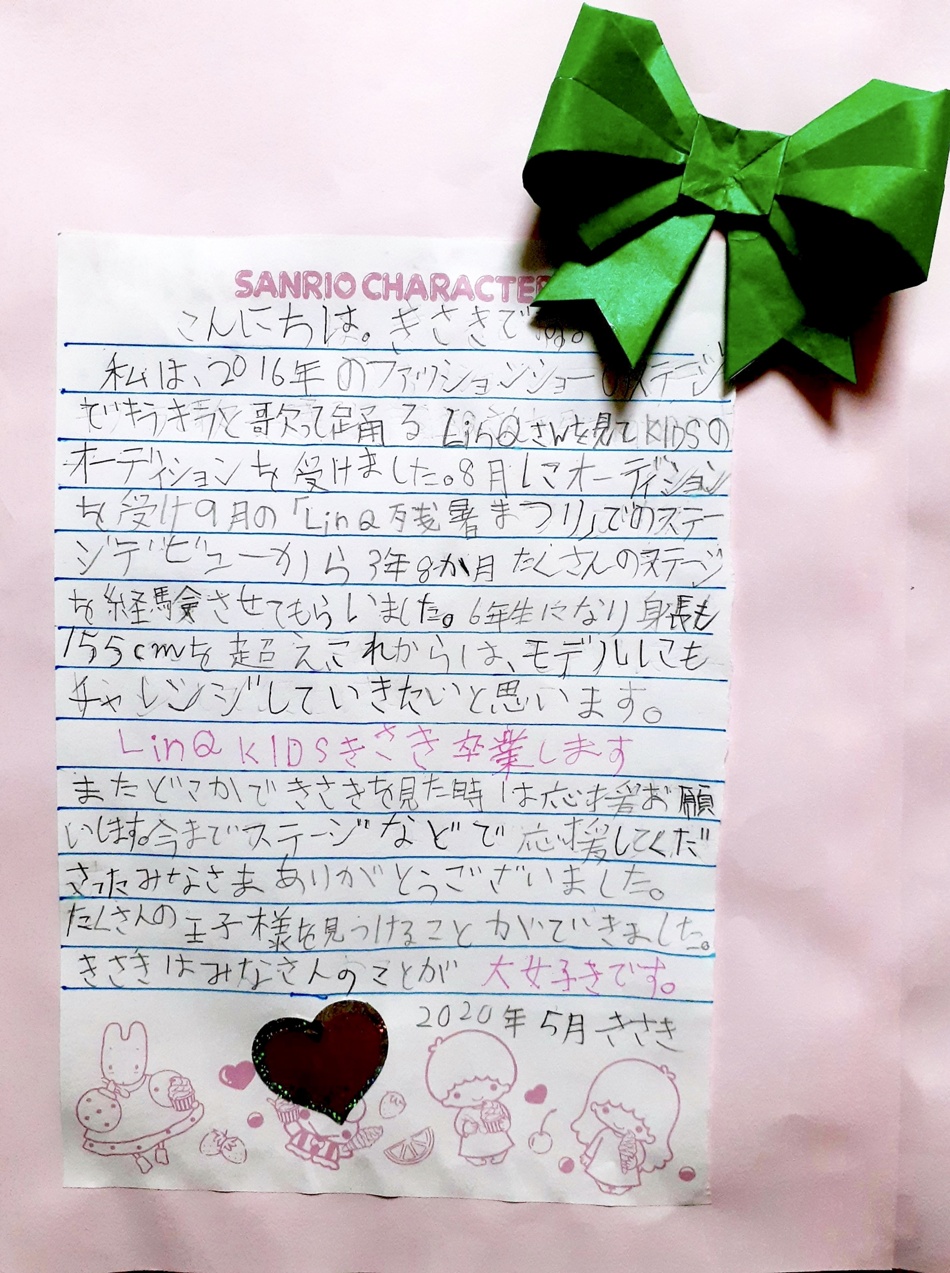 SANRIO CHARACTER
こんにちは。きさきです。
私は、2016年のファッションショーのステージ
でキラキラと歌って踊るLinQさんを見てKIDSの
オーディションを受けました。8月にオーディション
を受け9月の「LinQ残暑まつり」でのステー
ジデビューから3年8か月たくさんのステージ
を経験させてもらいました。6年生になり身長も
155cmを超えこれからは、モデルにも
チャレンジしていきたいと思います。
LinQ KIDSきさき卒業します
またどこかできさきを見た時は応援お願
いします。今までステージなどで応援してくだ
さったみなさまありがとうございました。
たくさんの王子様を見つけることができました。
きさきはみなさんのことが 大好きです。
2020年5月 きさき